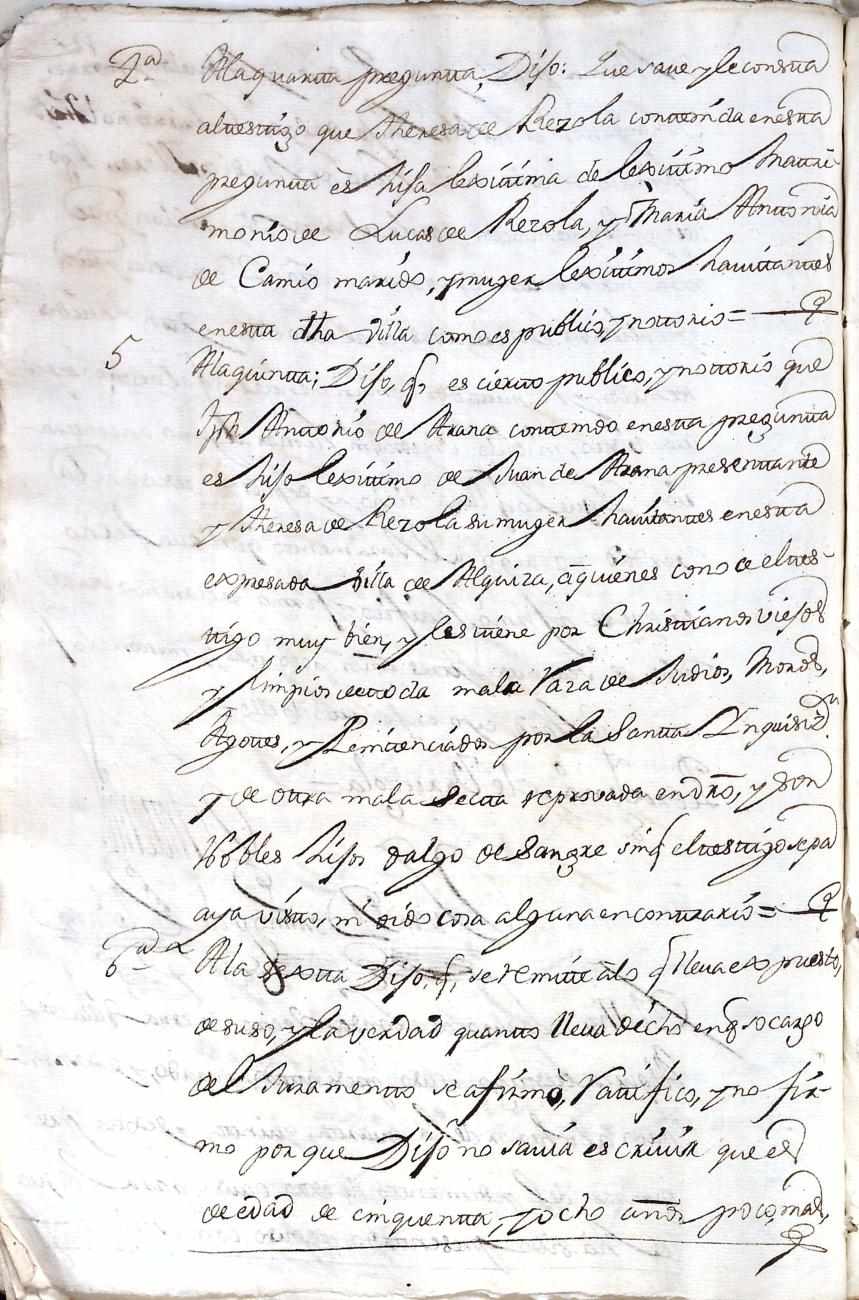 4ª Ala quarta pregunta, Dijo: Que saue y le consta
al testigo que Theresa de Rezola contenida en esta
pregunta ès hija lexitima de lexitimo Matri-
monio de Lucas de Rezola, y Maria Antonia
de Camio marido, y muger lexitimos hauitantes
en esta dha villa como es publico, y nottorio =
5 Ala quinta; Dijo, q̃ es cierto publico, y nottorio que
Jph Anttonio de Arana contenido en esta pregunta
es hijo lexitimo de Juan de Arana presentante
y Theresa de Rezola su muger hauitantes en esta
expresada villa de Alquiza, a quienes conoce el tes-
tigo muy bien, y les tiene por Christianos viejos
y limpios de toda mala Raza de Judios, Moros,
Agotes, y Penitenciados por la Santa Inquisizⁿ
y de otra mala secta reprovada en dr̃o, y son
Nobles hijos dalgo de sangre sin q̃ el testigo sepa
aya visto, ni oido cosa alguna en contrario =
6ª A la sexta Dijo, q̃, se remite àlo q̃ lleua expuesto,
de suso, y la verdad quanto lleua dicho en q̃ so cargo
del Juramento se afirmò, Ratifico, y no fir-
mo por que Dijo no sauia escriuir que es
de edad de cinquenta, y ocho años poco, mas,